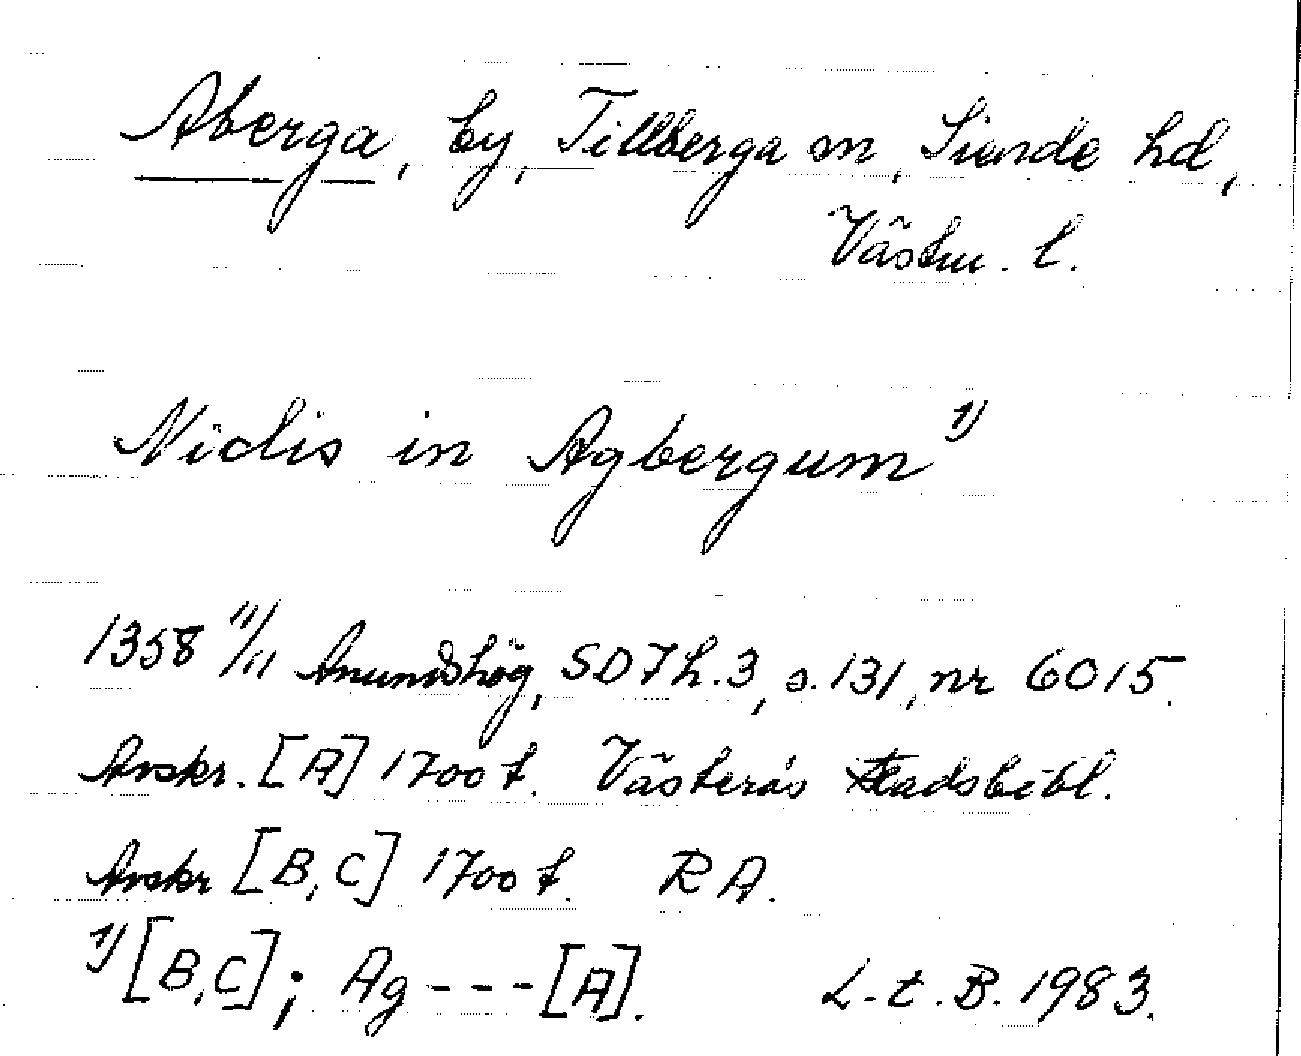 Aberga, by, Tillberga sn, Siende hd,
Västm. l.
Nidis in Agbergum 1)
1358 11/11 Anundshög, SD 7 h. 3, s. 131, nr 6015.
Avskr. [A] 1700 t. Västerås stadsbibl.
Avskr [B, C] 1700 t. RA.
1) [B, C]; Ag - - - [A]. L. t. B. 1983.